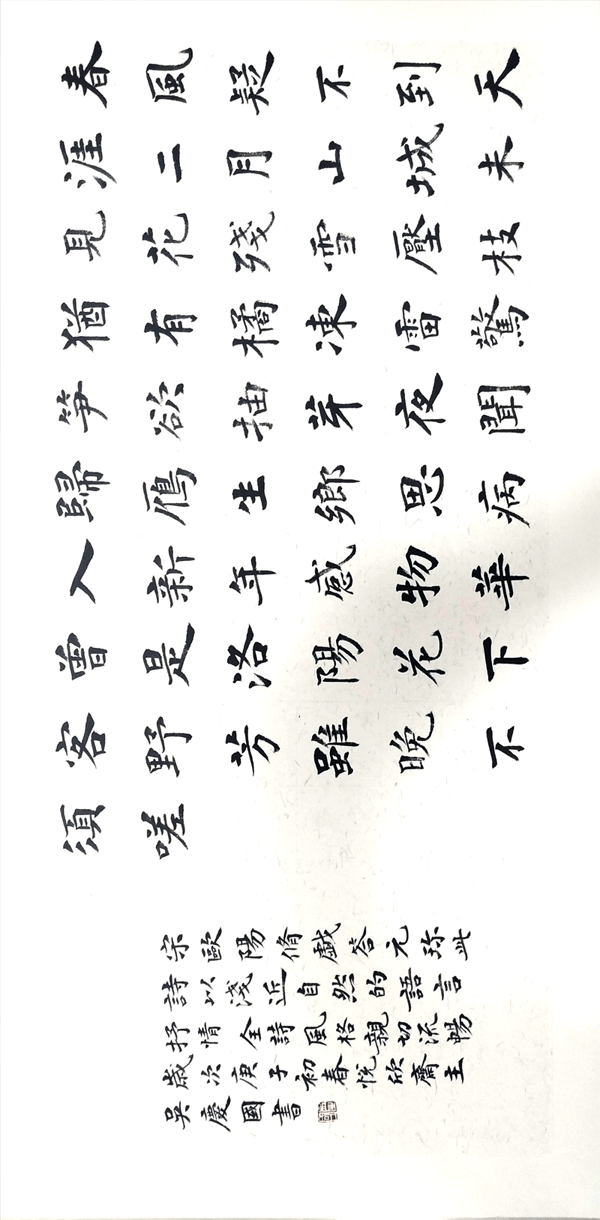 春風疑不到天
涯二月山城未
見花殘雪壓枝
猶有橘凍雷驚
笋欲抽芽夜聞
歸雁生鄉思病
入新年感物華
曾是洛陽花下
客野芳雖晚不
須嗟
宋歐陽脩戲答元珍此
詩以淺近自然的語言
抒情全詩風格親切流暢
歲次庚子初春悅欣齋主
吳慶國書